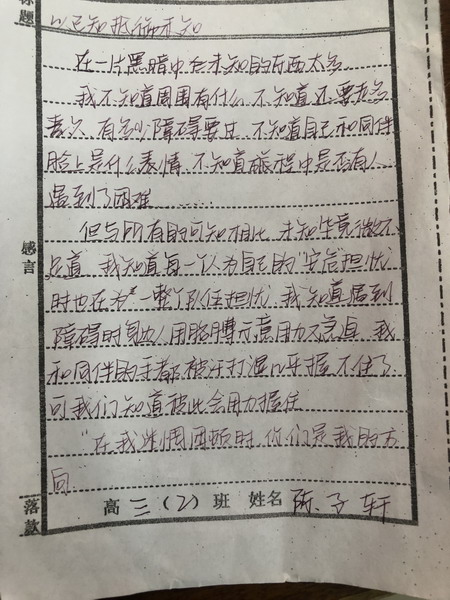 标题
以已知抵御未知
在一片黑暗中会未知的东西太多
我不知道周围有什么 不知道还要走多
有多少障碍要过 不知道自己和同伴
脸上是什么表情 不知道旅程中是否有人
遇到了困难……
但与所有的可知相比 未知毕竟微不
足道 我知道每一个人为自己的“安危”担忧
时也在为“一整个”队伍担忧 我知道遇到
障碍时 用胳膊示意用力 我
和同伴的手都被汗打湿 几乎握不住了
可我们知道彼此会用力握住
“在我迷惘困顿时 你们是我的方
向
感言
落款
高三（2）班 姓名 陈子轩